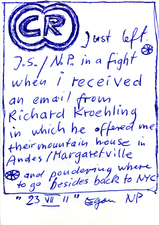 CR
Just left
J.S./N.P. in a fight
when i received
an email from
Richard Kroehling
in which he offered me
their mountain house in
Andes/Margaretville
and pondering where
to go besides back to NYC
"23 VII 11" Egon NP